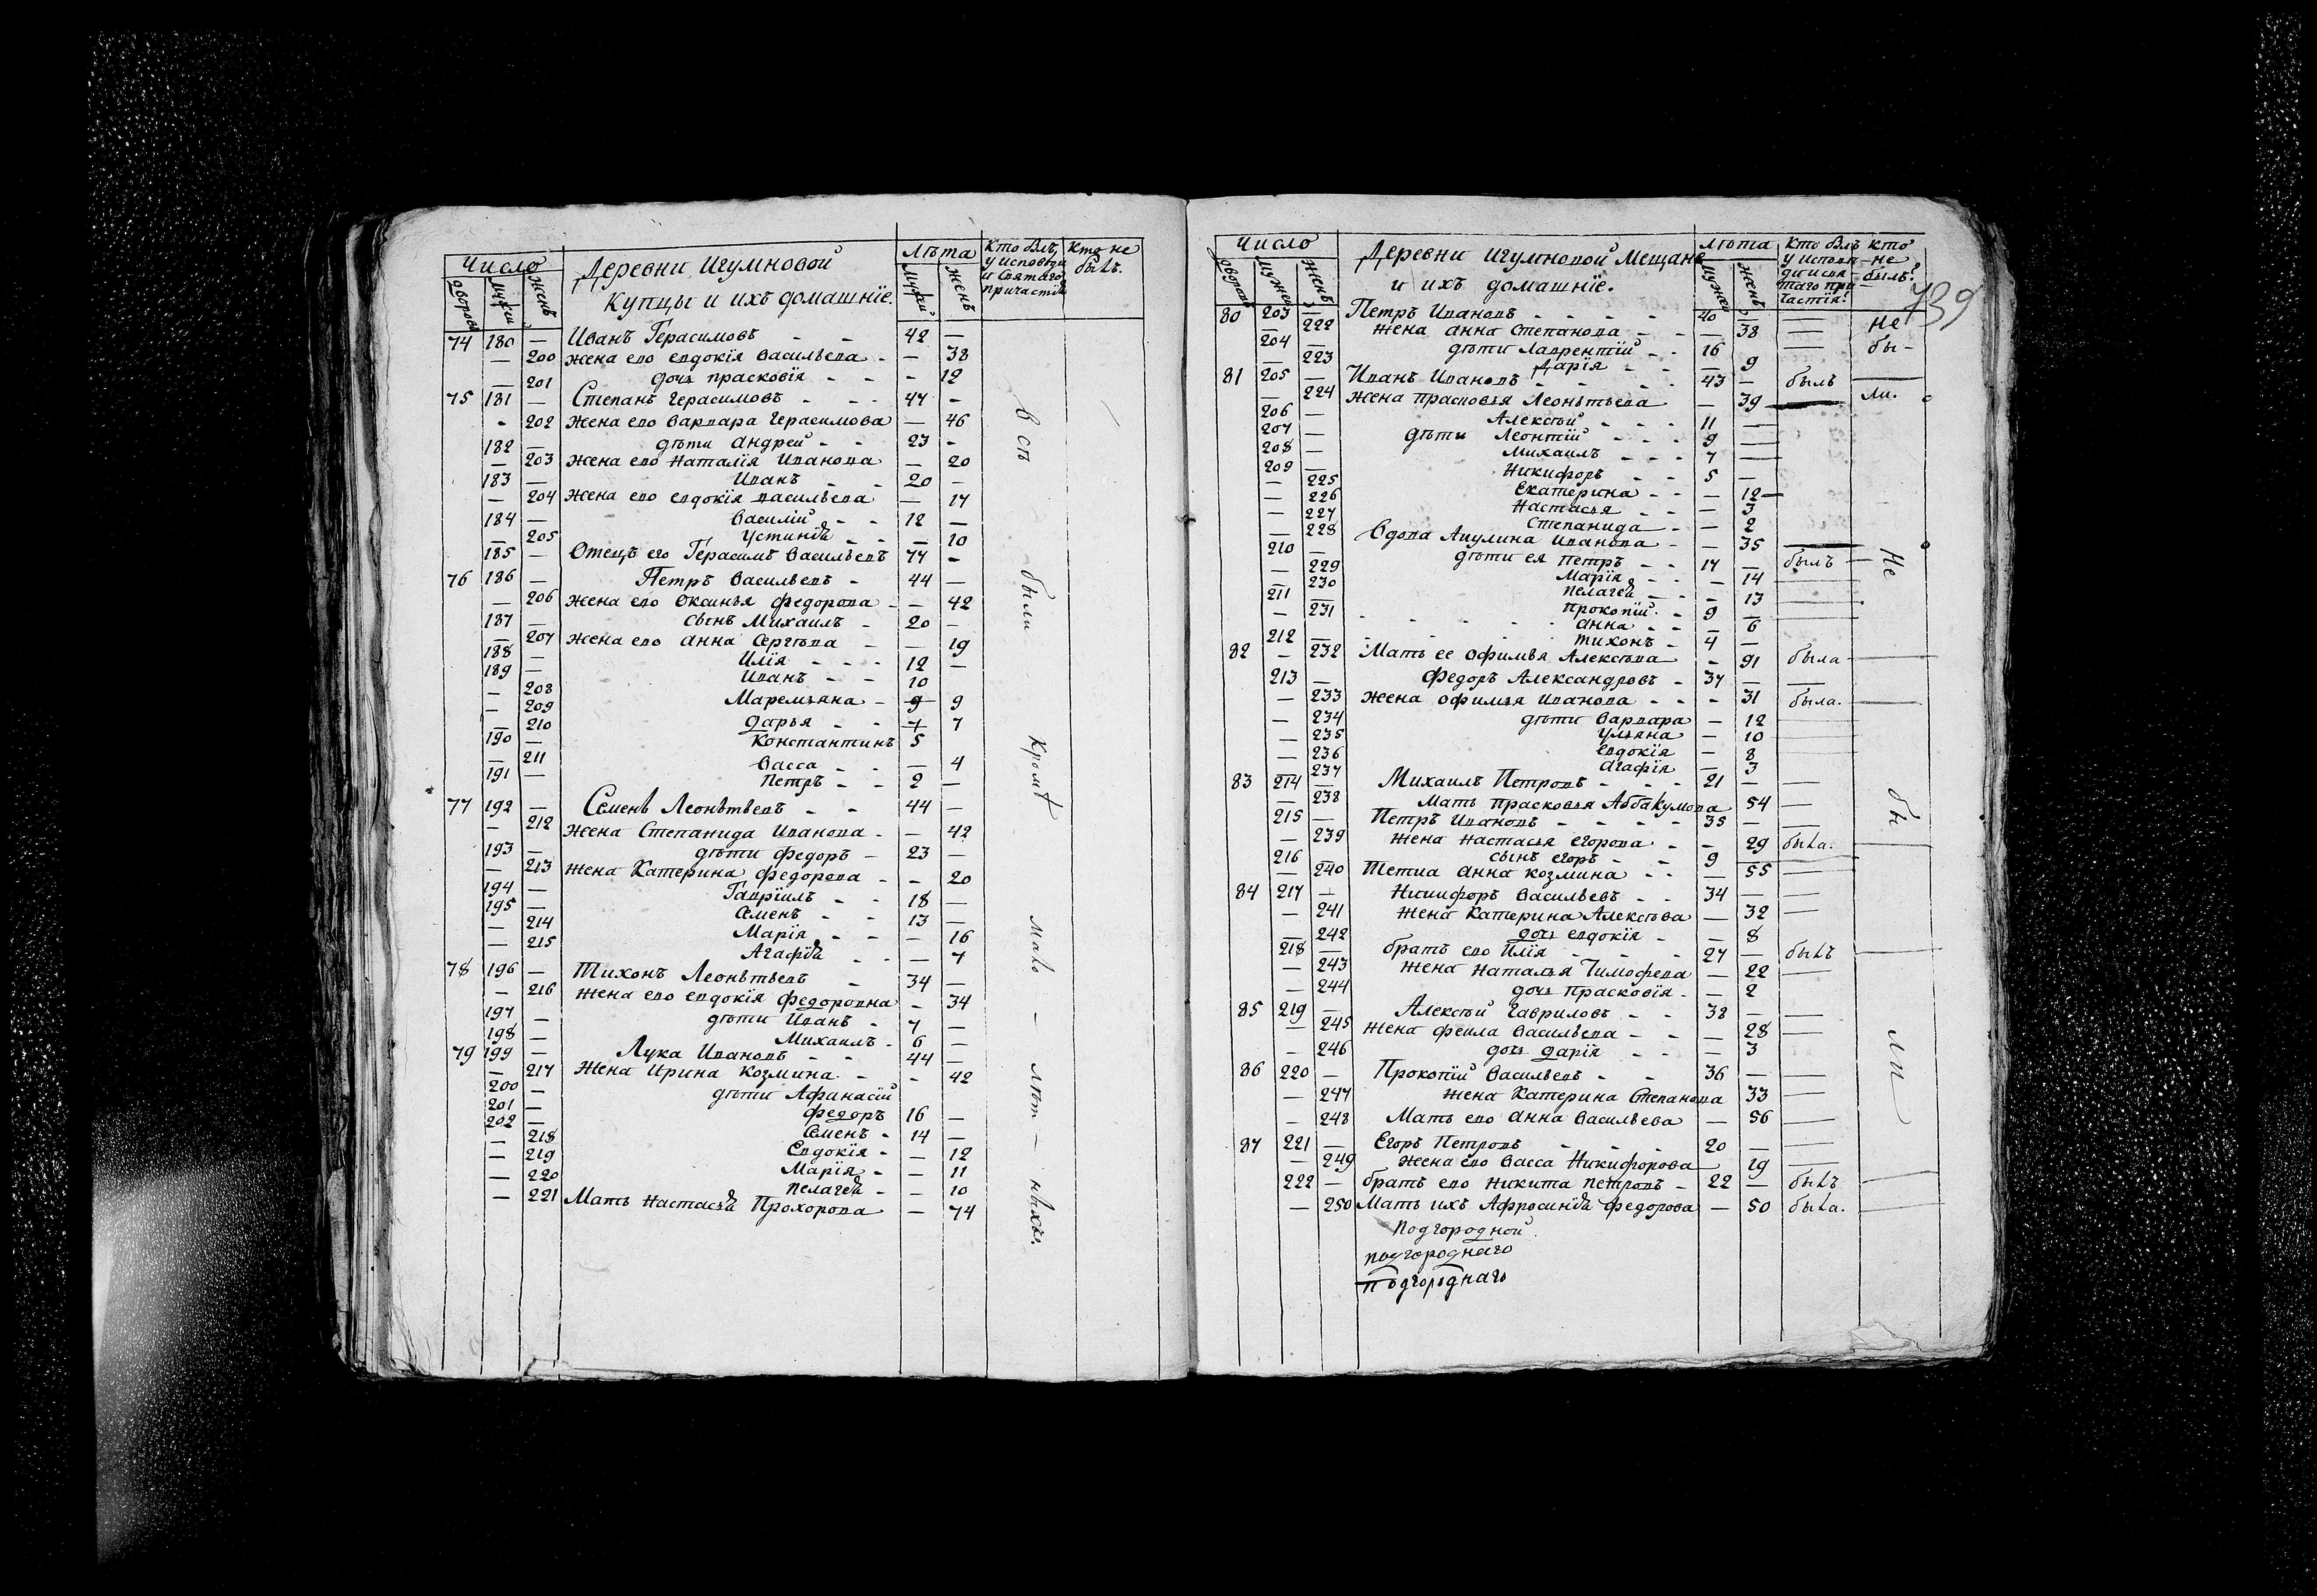 Число
дворовъ
мужеи
женъ
Деревни Игумновой
Купцы и ихъ домашніе.
Лѣта
мужеи
женъ
Кто былъ
у исповѣди
и святаго
причастія
Кто не
былъ.
74 180 — Иванъ Герасимовъ - - 42 —
— 200 жена его евдокія васильева - — 38
— 201 дочь прасковія - - - 12
75 181 — Степанъ Герасимовъ - - - 47 -
- 202 жена его варвара Герасимова — 46
182 — дѣти андреи - - 23 -
— 203 жена его наталія Иванова — 20
183 — Иванъ - - 20 -
— 204 жена его евдокія васильева — 17
184 — василіи - - 12 —
— 205 устинья - - — 10
185 — Отецъ его Герасимъ васильевъ 77 -
76 186 — Петръ васильевъ - 44 —
— 206 жена его Оксинья федорова - — 42
187 — сынъ Михаилъ - 20 —
— 207 жена его анна Сергѣва - — 19
188 — Илія - - - 12 —
189 — Иванъ - - 10
— 208 Маремьяна - 9 9
— 209 дарья - - 7 7
— 210
190 — Константинъ 5
— 211 васса - - — 4
191 — Петръ - - 2 —
77 192 — Семенъ Леонтьевъ - - 44 —
— 212 жена Степанида Иванова - — 42
193 — дѣти федоръ - 23 —
— 213 жена Катерина федорова - - 20
194 — Гавріилъ - - 18 —
195 — Семенъ - - 13 —
— 214 Марія - - — 16
— 215 Агафья - - — 7
78 196 — Тихонъ Леонтьевъ - 34 —
— 216 жена его евдокія федоровна - 34
197 — дѣти Иванъ - 7 —
198 — Михаилъ - 6 —
79 199 — Лука Ивановъ - - 44 —
— 217 жена Ирина козмина - - 42
200 — дѣти Афанасіи
201 — федоръ 16 —
202 — Семенъ - 14 —
— 218 Евдокія - — 12
— 219 Марія - — 11
— 220 пелагея - — 10
— 221 Мать настасья Прохорова — 74
всѣ были Кромѣ мало - лѣт — нѣхъ.
739
Число
дворовъ
мужеи
женъ
Деревни Игумновой Мещане
и ихъ домашніе.
Лѣта
мужеи
женъ
Кто былъ
у исповѣ-
ди и свя-
таго при-
частія?
кто
не
былъ?
80 203 — Петръ Ивановъ - - - - 40 —
— 222 жена анна степанова - - — 38 —
204 — дѣти лаврентіи - - 16 —
— 223 дарія - - — 9
81 205 — Иванъ Ивановъ - - - - 43 - былъ —
— 224 жена прасковья Леонтьева — 39 —
206 — Алексѣи - - - 11 —
207 — дѣти Леонтіи - - - 9 —
208 — Михаилъ - - - 7 —
209 — Никифоръ - - 5 —
— 225 Екатерина - - — 12
— 226 Настасья - - — 3
— 227 степанида - — 2
— 228 вдова Акулина иванова - — 35 —
210 — дѣти ея петръ - - 17 — былъ —
— 229 Марія - - — 14 —
— 230 пелагея - - - 13 —
211 — прокопіи - - 9 —
— 231 анна - - — 6
212 — тихонъ - 4 —
82 — 232 Мать ее офимья Алексѣва - 91 была —
213 — федоръ Александровъ - 37 — —
— 233 жена офимья иванова - - - 31 была. —
— 234 дѣти варвара — 12 —
— 235 ульяна — 10 —
— 236 евдокія — 8 —
— 237 агафія — 3 —
83 214 — Михаилъ Петровъ - - - 21 — —
— 238 Мать прасковья Аббакумова 54 —
215 — Петръ Ивановъ - - - - 35 — —
— 239 жена настасья егорова - - 29 была. —
216 — сынъ егоръ - - 9
— 240 Тетка анна козмина - - — 55 —
84 217 — Никифоръ васильевъ - - 34 — —
— 241 жена катерина Алексѣва — 32 —
— 242 дочь евдокія - — 8
218 — братъ его Илія - - - 27 — былъ —
— 243 жена наталья Тимофева — 22 —
— 244 дочь прасковія - — 2
85 219 — Алексѣи Гавриловъ - - 38 — —
— 245 жена фекла васильева - - — 28 —
— 246 дочь дарія - - — 3
86 220 — Прокопіи васильевъ - - 36 — —
— 247 жена катерина степанова 33 —
— 248 Мать его анна васильева — 56 —
87 221 — Егоръ Петровъ - - - 20 — —
— 249 жена его васса Никифорова 19 —
222 — братъ его никита петровъ - 22 — былъ —
— 250 Мать ихъ Афросинья федорова — 50 была. —
Не
бы-
ли.
Не бы ли
подгородной
подгороднаго
подгороднаго